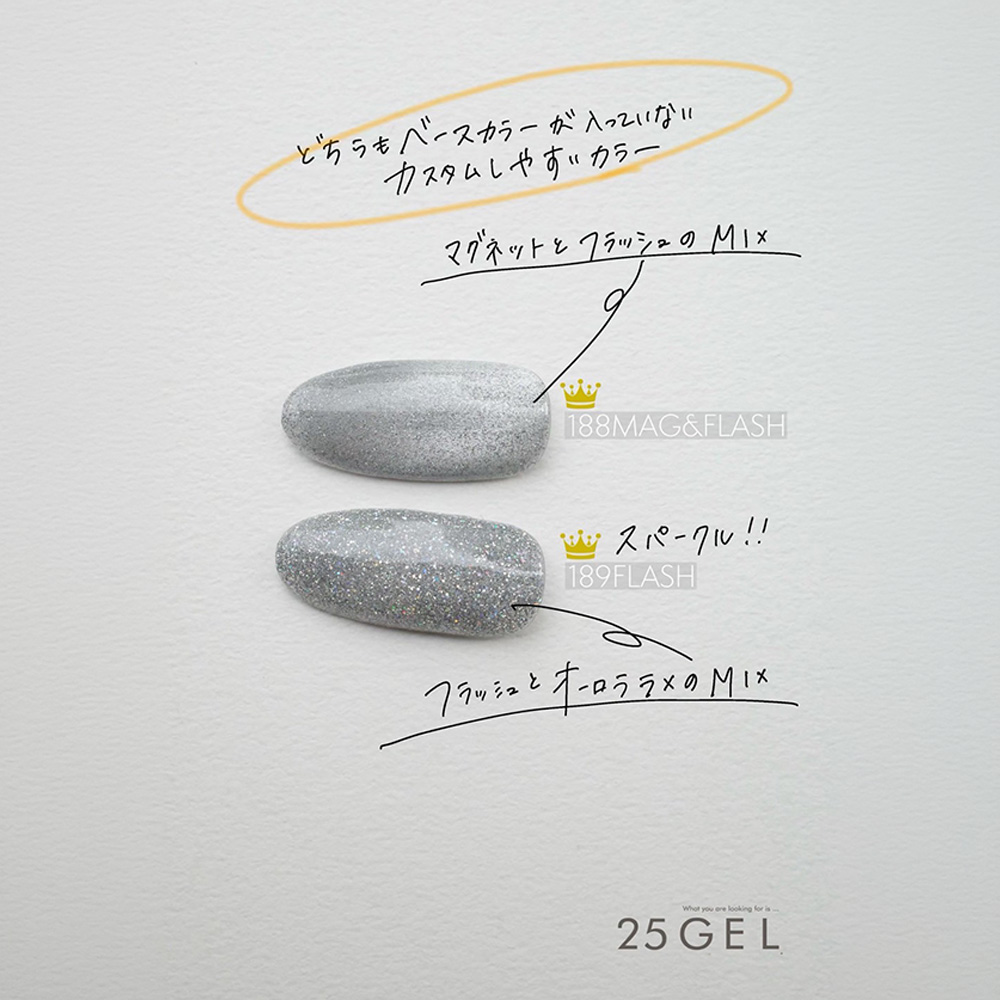 どちらもベースカラーが入っていない
カスタムしやすいカラー
マグネットとフラッシュのMIX
188MAG&FLASH
スパークル!!
189FLASH
フラッシュとオーロララメのMIX
What you are looking for is ...
25GEL